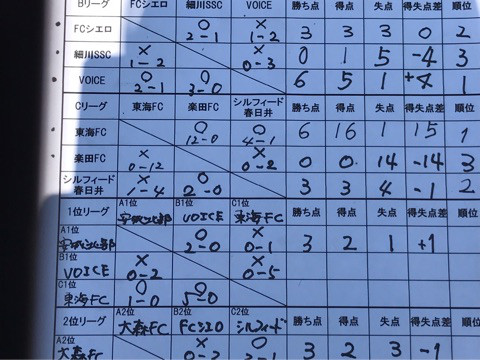 Bリーグ FCシエロ 細川SSC VOICE 勝ち点 得点 失点 得失点差 順位
FCシエロ ○ 2-1 × 1-2 3 3 3 0 2
細川SSC × 1-2 × 0-3 0 1 5 -4 3
VOICE ○ 2-1 ○ 3-0 6 5 1 +4 1
Cリーグ 東海FC 楽田FC シルフィード春日井 勝ち点 得点 失点 得失点差 順位
東海FC ○ 12-0 ○ 4-1 6 16 1 15 1
楽田FC × 0-12 × 0-2 0 0 14 -14 3
シルフィード春日井 × 1-4 ○ 2-0 3 3 4 -1 2
1位リーグ A1位 B1位 VOICE C1位 東海FC 勝ち点 得点 失点 得失点差 順位
A1位 ○ 2-0 × 0-1 3 2 1 +1
B1位 VOICE × 0-2 × 0-5
C1位 東海FC ○ 1-0 ○ 5-0
2位リーグ A2位 大森FC B2位 FCシエロ C2位 シルフィード 勝ち点 得点 失点 得失点差 順位
A2位 大森FC × ○ 3 2 3 -1